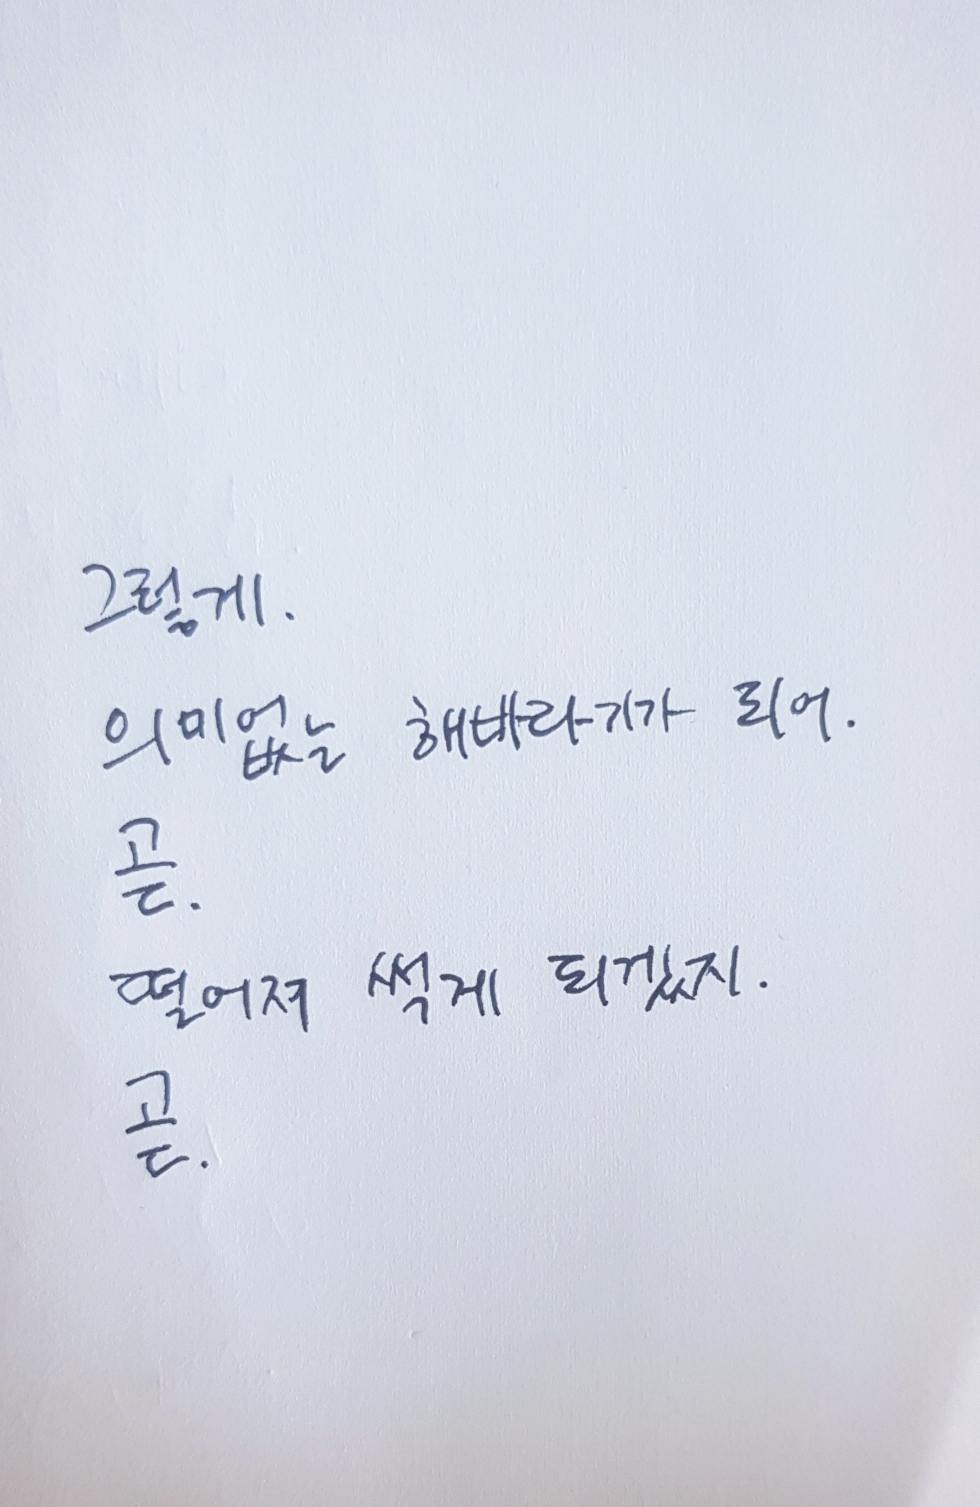 그렇게.
의미없는 해바라기가 되어.
곧.
떨어져 썩게 되겠지.
곧.